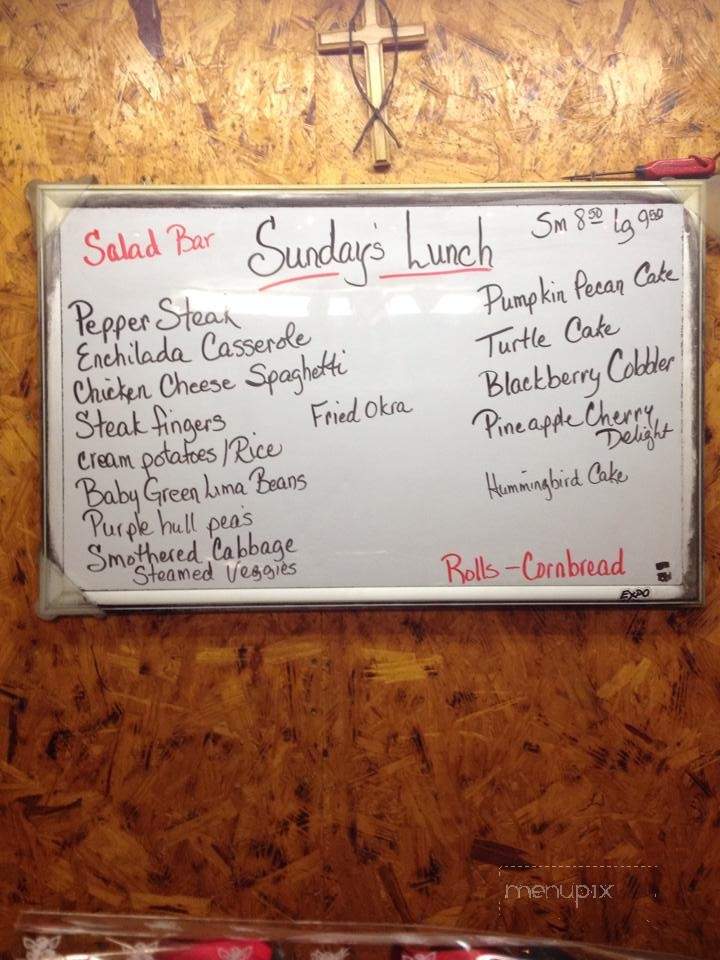 Salad Bar
Sunday's Lunch
Sm 8.50 Lg 9.50
Pepper Steak
Enchilada Casserole
Chicken Cheese Spaghetti
Steak fingers
Fried Okra
cream potatoes/Rice
Baby Green Lima Beans
Purple hull peas
Smothered Cabbage
Steamed Veggies
Pumpkin Pecan Cake
Turtle Cake
Blackberry Cobbler
Pineapple Cherry
Delight
Hummingbird Cake
Rolls - Cornbread
EXPO
menupix